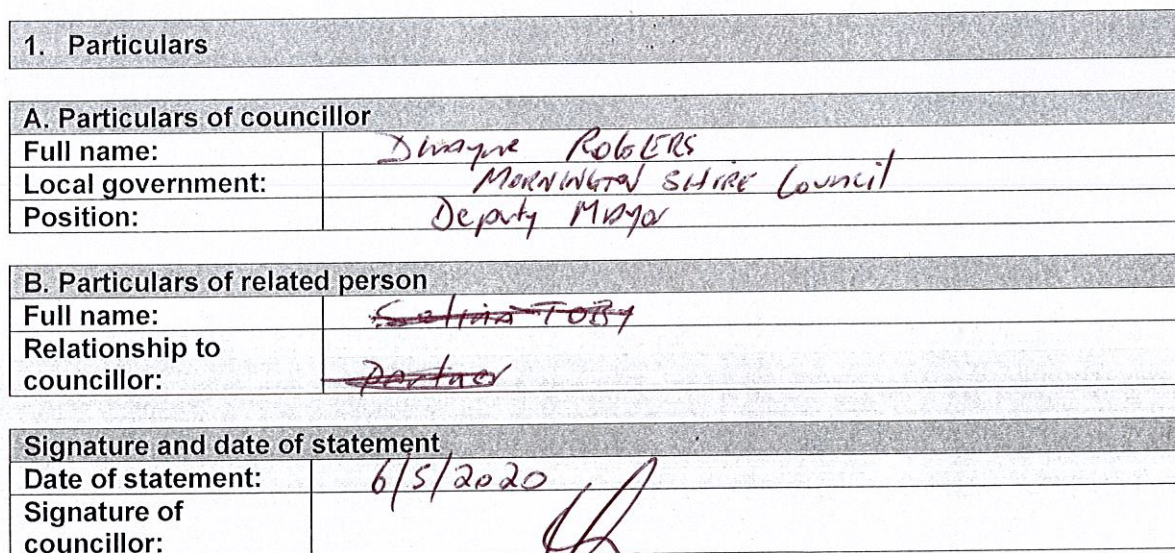 1. Particulars
A. Particulars of councillor
Full name: Dwayne ROGERS
Local government: MORNINGTON SHIRE Council
Position: Deputy Mayor
B. Particulars of related person
Full name: TOBY
Relationship to
councillor: Partner
Signature and date of statement
Date of statement: 6/5/2020
Signature of
councillor: